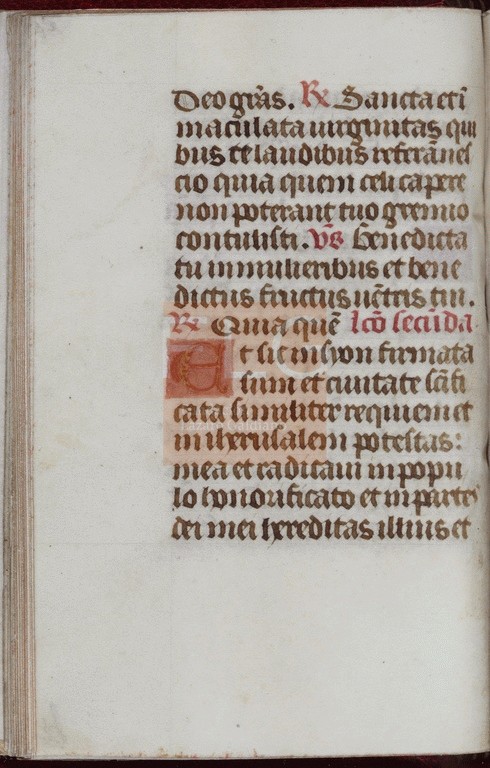 Deo gr̃as. R̃ Sancta et ĩ
maculata uirginitas qui
bus te laudibus referã nes
cio quia quem celi capere
non poterant tuo gremio
contulisti. Ṽs Benedicta
tu in mulieribus et bene
dictus fructus uẽtris tui.
R̃ Quia quẽ lcõ secũda
Et sic in syon firmata
sum et ciuitate sc̃ifi
cata similiter requieui et
in iherusalem potestas:
mea et radicaui in popu
lo honorificato et in partes
dei mei hereditas illius et
Lázaro Galdiano